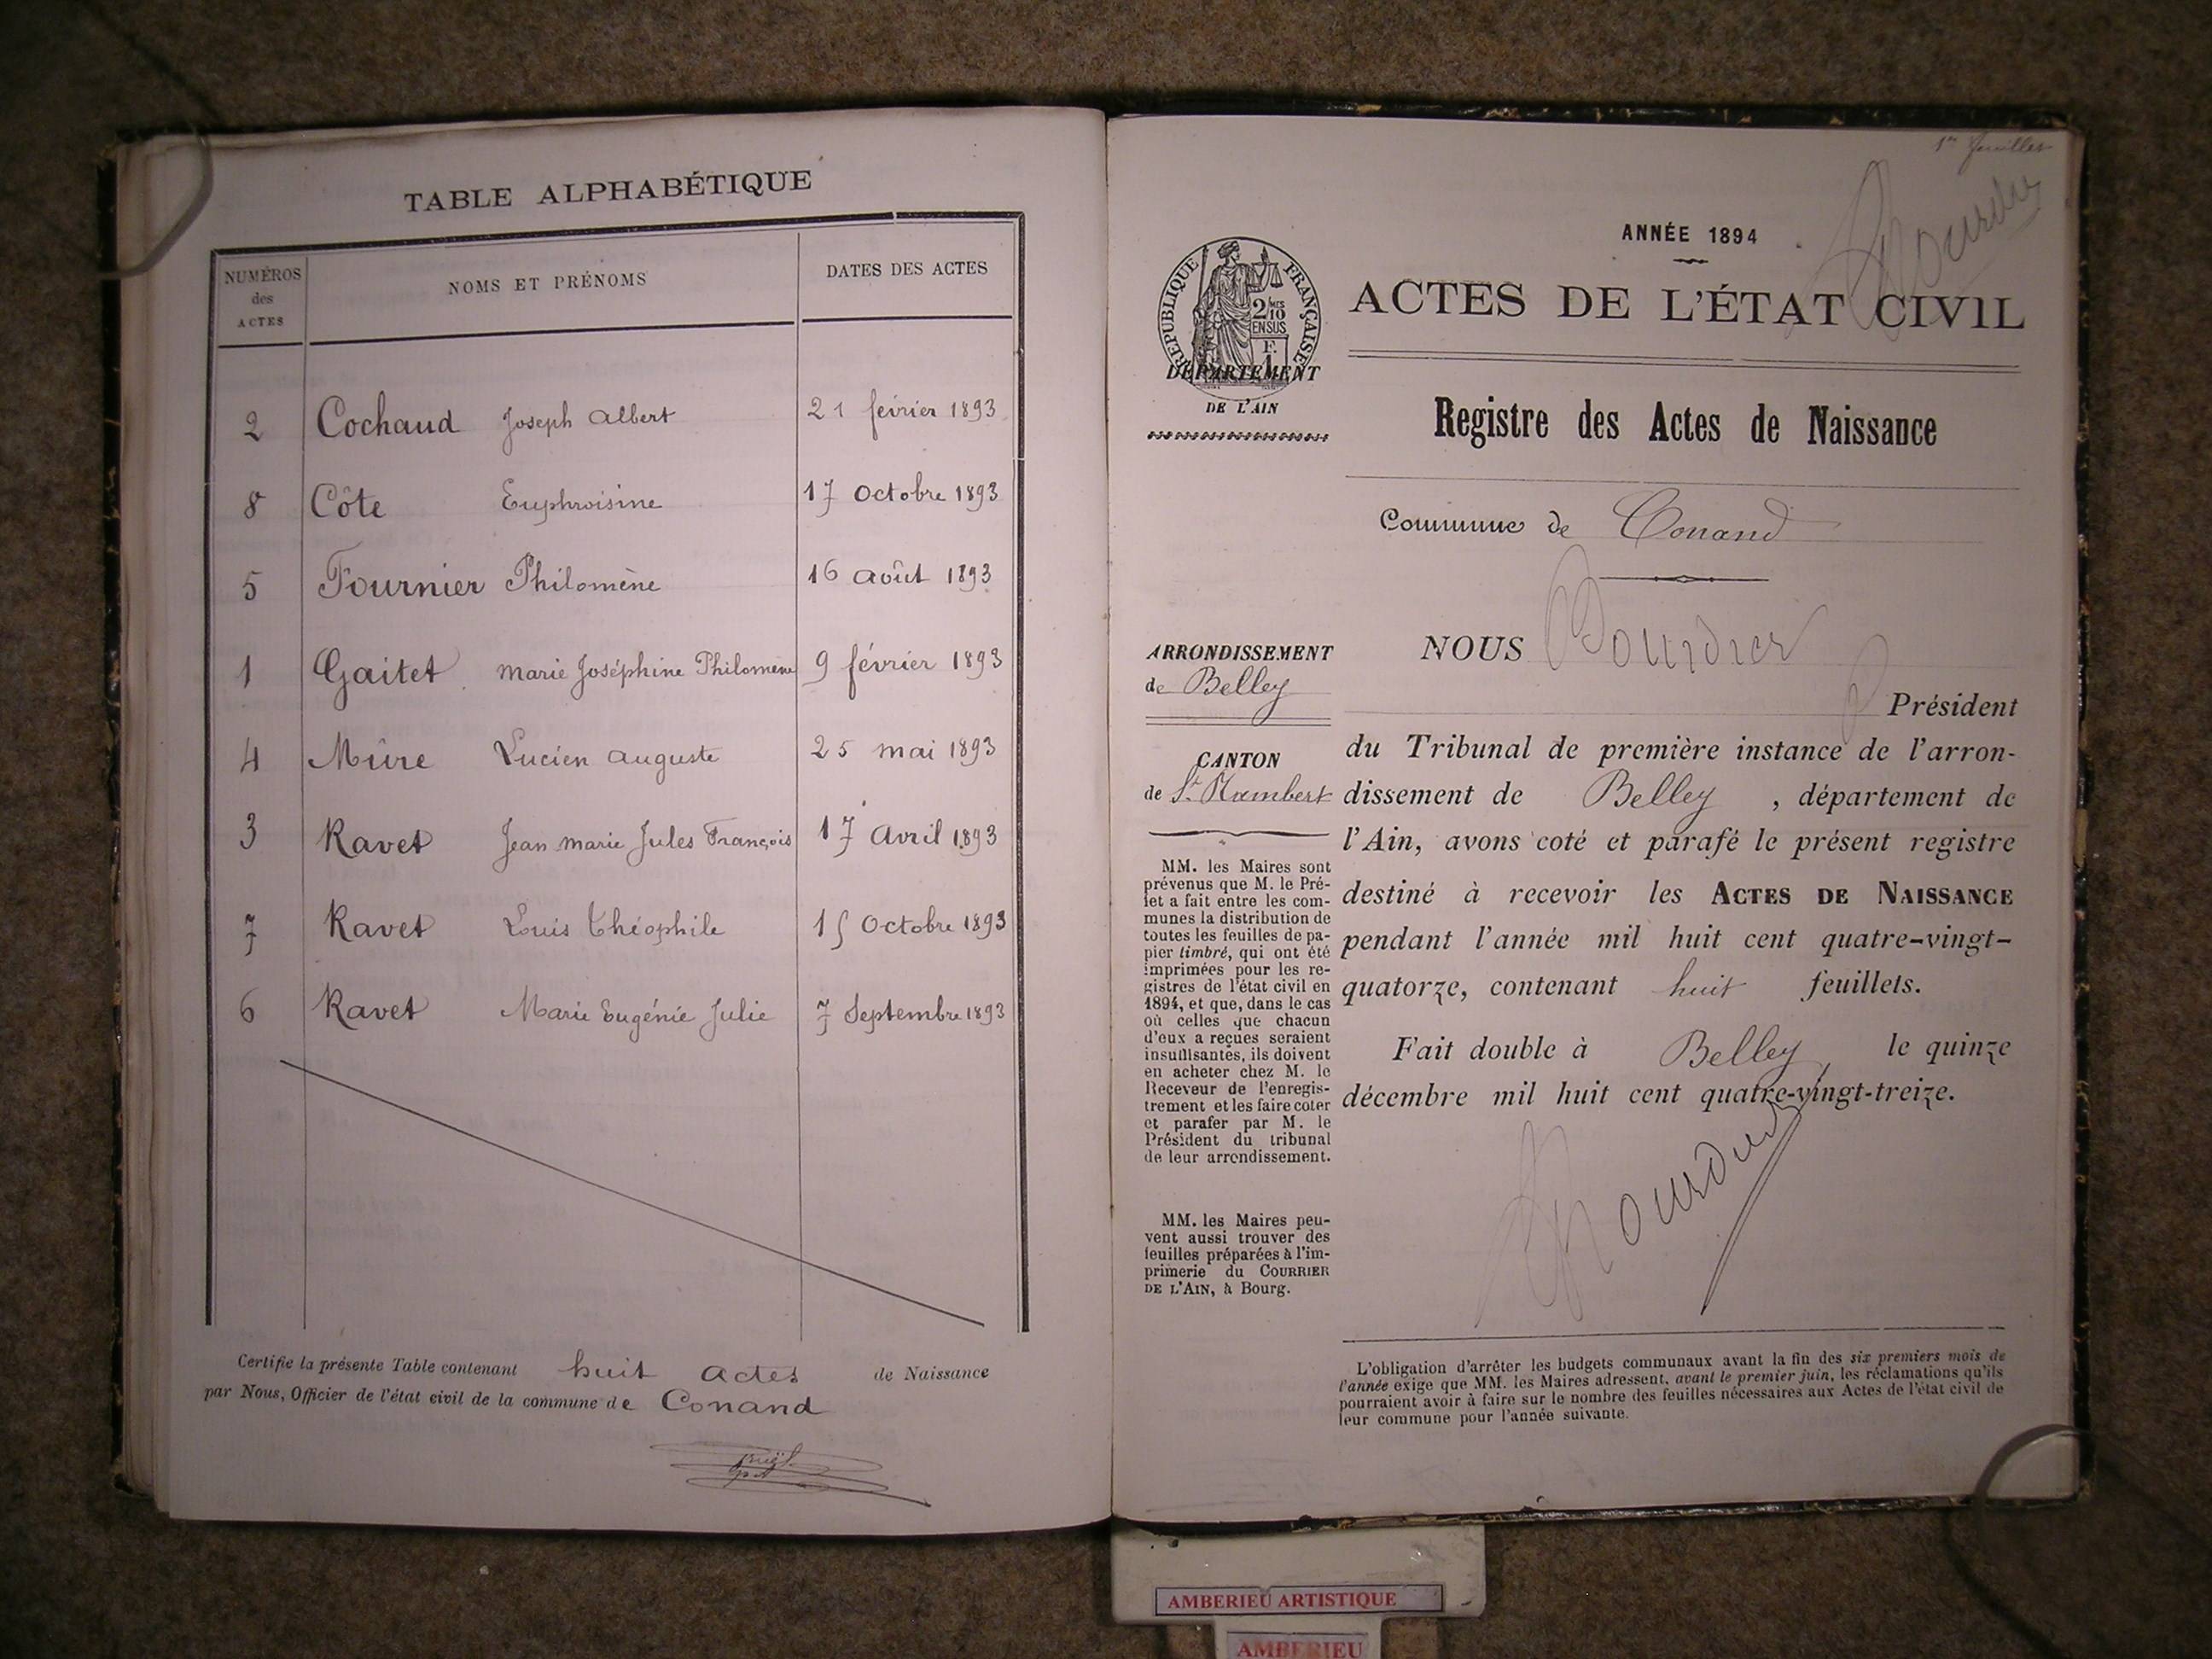 TABLE ALPHABÉTIQUE
NUMÉROS des ACTES NOMS ET PRÉNOMS DATES DES ACTES
2 Cochaud Joseph Albert 21 février 1893
8 Côte Euphroisine 17 Octobre 1893
5 Fournier Philomène 16 août 1893
1 Gaitet marie Joséphine Philomène 9 février 1893
4 Mûre Lucien auguste 25 mai 1893
3 Ravet Jean marie Jules François 17 Avril 1893
7 Ravet Louis Théophile 15 Octobre 1893
6 Ravet Marie Eugénie Julie 7 Septembre 1893
Certifie la présente Table contenant huit actes de Naissance
par Nous, Officier de l'état civil de la commune de Conand
1er feuillet
Bourdier
ANNÉE 1894
ACTES DE L'ÉTAT CIVIL
RÉPUBLIQUE FRANÇAISE
2/10 MES
EN SUS
F.
1
DÉPARTEMENT
DE L'AIN
Registre des Actes de Naissance
Commune de Conand
ARRONDISSEMENT
de Belley
CANTON
de St. Rambert
MM. les Maires sont
prévenus que M. le Pré-
fet a fait entre les com-
munes la distribution de
toutes les feuilles de pa-
pier timbré, qui ont été
imprimées pour les re-
gistres de l'état civil en
1894, et que, dans le cas
où celles que chacun
d'eux a reçues seraient
insuffisantes, ils doivent
en acheter chez M. le
Receveur de l'enregis-
trement et les faire coter
et parafer par M. le
Président du tribunal
de leur arrondissement.
MM. les Maires peu-
vent aussi trouver des
feuilles préparées à l'im-
primerie du COURRIER
DE L'AIN, à Bourg.
NOUS Bourdier
Président
du Tribunal de première instance de l'arron-
dissement de Belley, département de
l'Ain, avons coté et parafé le présent registre
destiné à recevoir les ACTES DE NAISSANCE
pendant l'année mil huit cent quatre-vingt-
quatorze, contenant huit feuillets.
Fait double à Belley, le quinze
décembre mil huit cent quatre-vingt-treize.
Bourdier
L'obligation d'arrêter les budgets communaux avant la fin des six premiers mois de
l'année exige que MM. les Maires adressent, avant le premier juin, les réclamations qu'ils
pourraient avoir à faire sur le nombre des feuilles nécessaires aux Actes de l'état civil de
leur commune pour l'année suivante.
AMBERIEU ARTISTIQUE
AMBERIEU